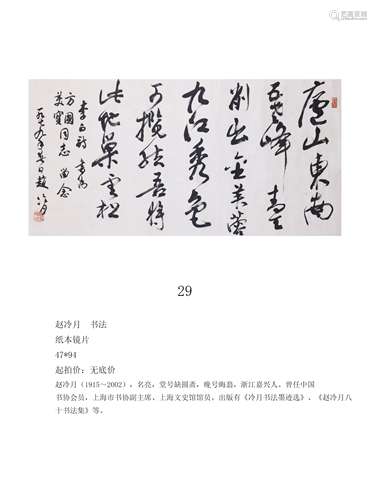 廬山東南
五老峰青天
削出金芙蓉
九江秀色
可攬結吾將
此地巢雲松
李白詩 書為
方國同志 留念
一九七九年春日趙冷月
29
赵冷月　书法
纸本镜片
47*94
起拍价：无底价
赵冷月（1915～2002），名亮，堂号缺圆斋，晚号晦翁，浙江嘉兴人。曾任中国
书协会员，上海市书协副主席、上海文史馆馆员，出版有《冷月书法墨迹选》、《赵冷月八
十书法集》等。